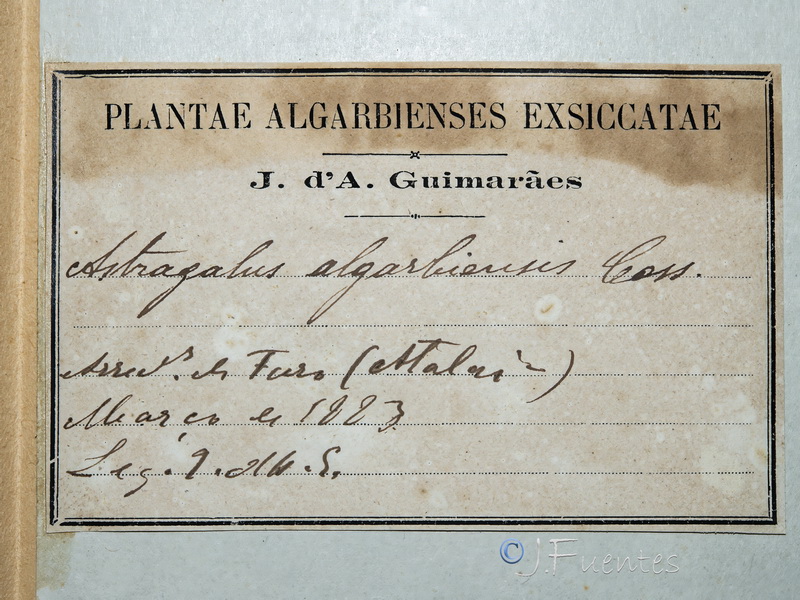 PLANTAE ALGARBIENSES EXSICCATAE
J. d'A. Guimarães
Astragalus algarbiensis Coss.
Arred.es de Faro (Atalaia)
Março de 1883
Leg. J. d'A. G.
© J.Fuentes